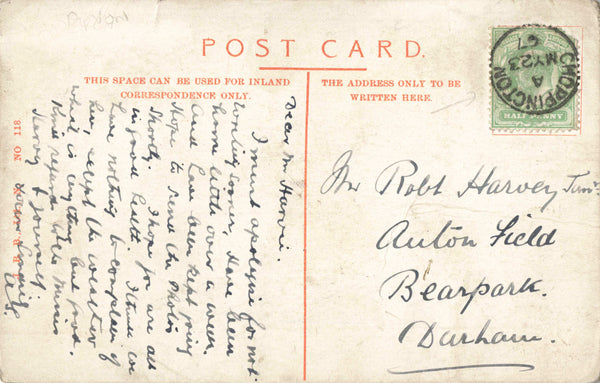 POST CARD.
THIS SPACE CAN BE USED FOR INLAND
CORRESPONDENCE ONLY.
THE ADDRESS ONLY TO BE
WRITTEN HERE.
CHOPPINGTON
A
MY 23
07
HALF PENNY
NO 118
Dear Mr Harvie.
I must apologise for not
writing sooner, Have been
home little over a week.
And have been kept going
Hope to send the photos
Shortly. I hope you are all
in good health. I think we
have nothing to complain of
her, except the weather
which is anything but good.
Kind regards to the Misses
Harvey & yourself
Yours
Mr Robt Harvey Junr.
Anton Field
Bearpark.
Durham.